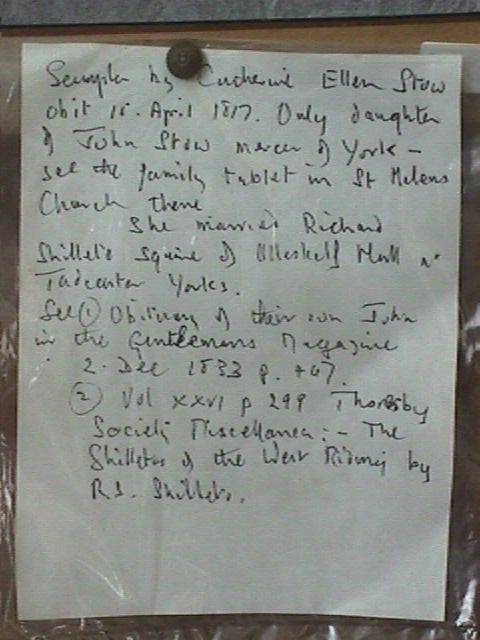 Sampler by Catherine Ellen Stow
obit 15. April 1817. Only daughter
of John Stow mercer of York –
see the family tablet in St Helens
Church there
She married Richard
Shilleto Squire of Ulleskelf Hall nr
Tadcaster Yorks.
See ① Obituary of their son John
in the Gentlemans Magazine
2. Dec 1833 p.
② Vol XXVI p 299 Thoresby
Society Miscellanea:- The
Shilletos of the West Riding by
R.S. Shilleto.